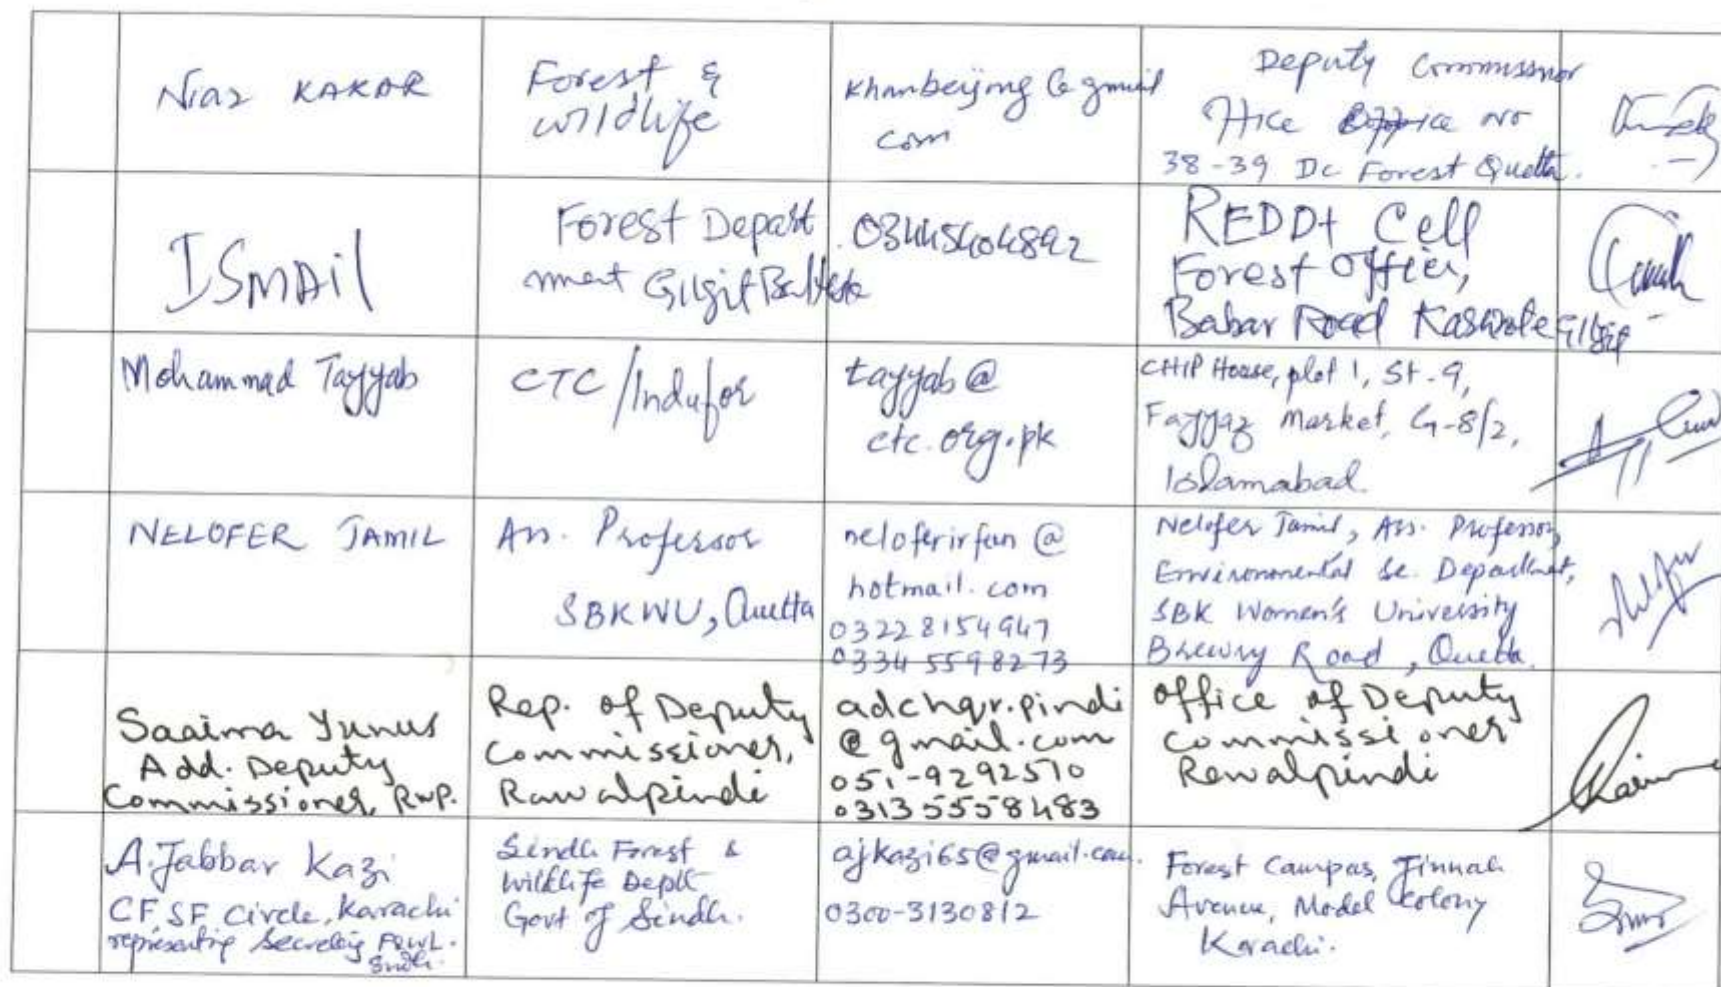 Niaz KAKAR
Forest &
wildlife
Khanbeijing@gmail
com
Deputy Commissnor
office no
38-39 Dc Forest Quetta.
ISMAil
Forest Depart
ment Gilgit
03445404892
REDD+ Cell
Forest Offices,
Babar Road Gilgit
Mohammad Tayyab
CTC/Indufor
tayyab@
ctc.org.pk
CHIP House, plot 1, St-9,
Fayyaz Market, G-8/2,
Islamabad.
NELOFER JAMIL
Ass. Professor
SBKWU, Quetta
neloferirfan@
hotmail.com
03228154947
0334 5598273
Nelofer Jamil, Ass. Professor,
Environmental Sc. Department,
SBK Women's University
Brewry Road, Quetta.
Saaima Yunus
Add. Deputy
Commissioner, RWP.
Rep. of Deputy
Commissioner,
Rawalpindi
adchqr.pindi
@gmail.com
051-9292510
03135558483
Office of Deputy
Commissioner
Rawalpindi
A. Jabbar Kazi
CF, SF Circle, Karachi
representing Secretary F&WL.
Sindh.
Sindh Forest &
Wildlife Deptt
Govt of Sindh.
ajkazi65@gmail.com.
0300-3130812
Forest Campas, Jinnah
Avenue, Model Colony
Karachi.